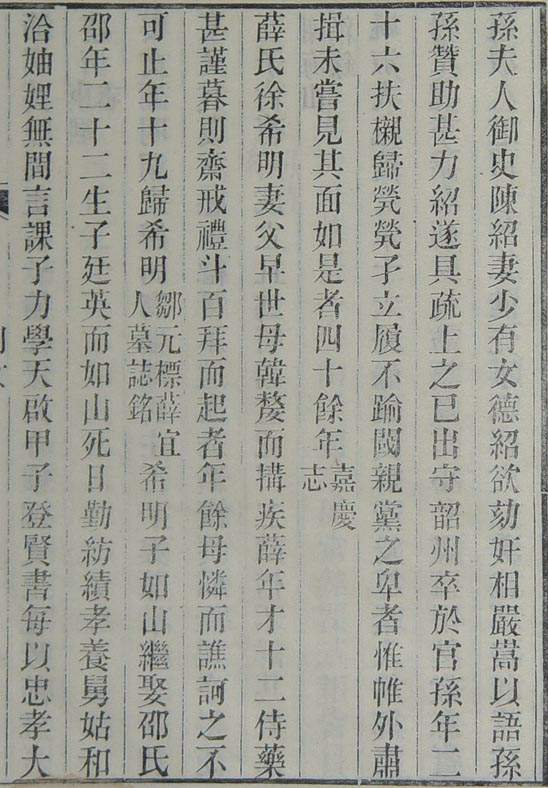 孫夫人御史陳紹妻少有女德紹欲劾奸相嚴嵩以語孫
孫贊助甚力紹遂具疏上之已出守韶州卒於官孫年二
十六扶櫬歸煢煢孑立履不踰閾親黨之卑者惟帷外肅
揖未嘗見其面如是者四十餘年嘉慶志
薛氏徐希明妻父早世母韓嫠而搆疾薛年才十二侍藥
甚謹暮則齋戒禮斗百拜而起者年餘母憐而譙訶之不
可止年十九歸希明鄒元標薛宜人墓誌銘希明子如山繼娶邵氏
邵年二十二生子廷英而如山死日勤紡績孝養舅姑和
洽妯娌無間言課子力學天啟甲子登賢書每以忠孝大